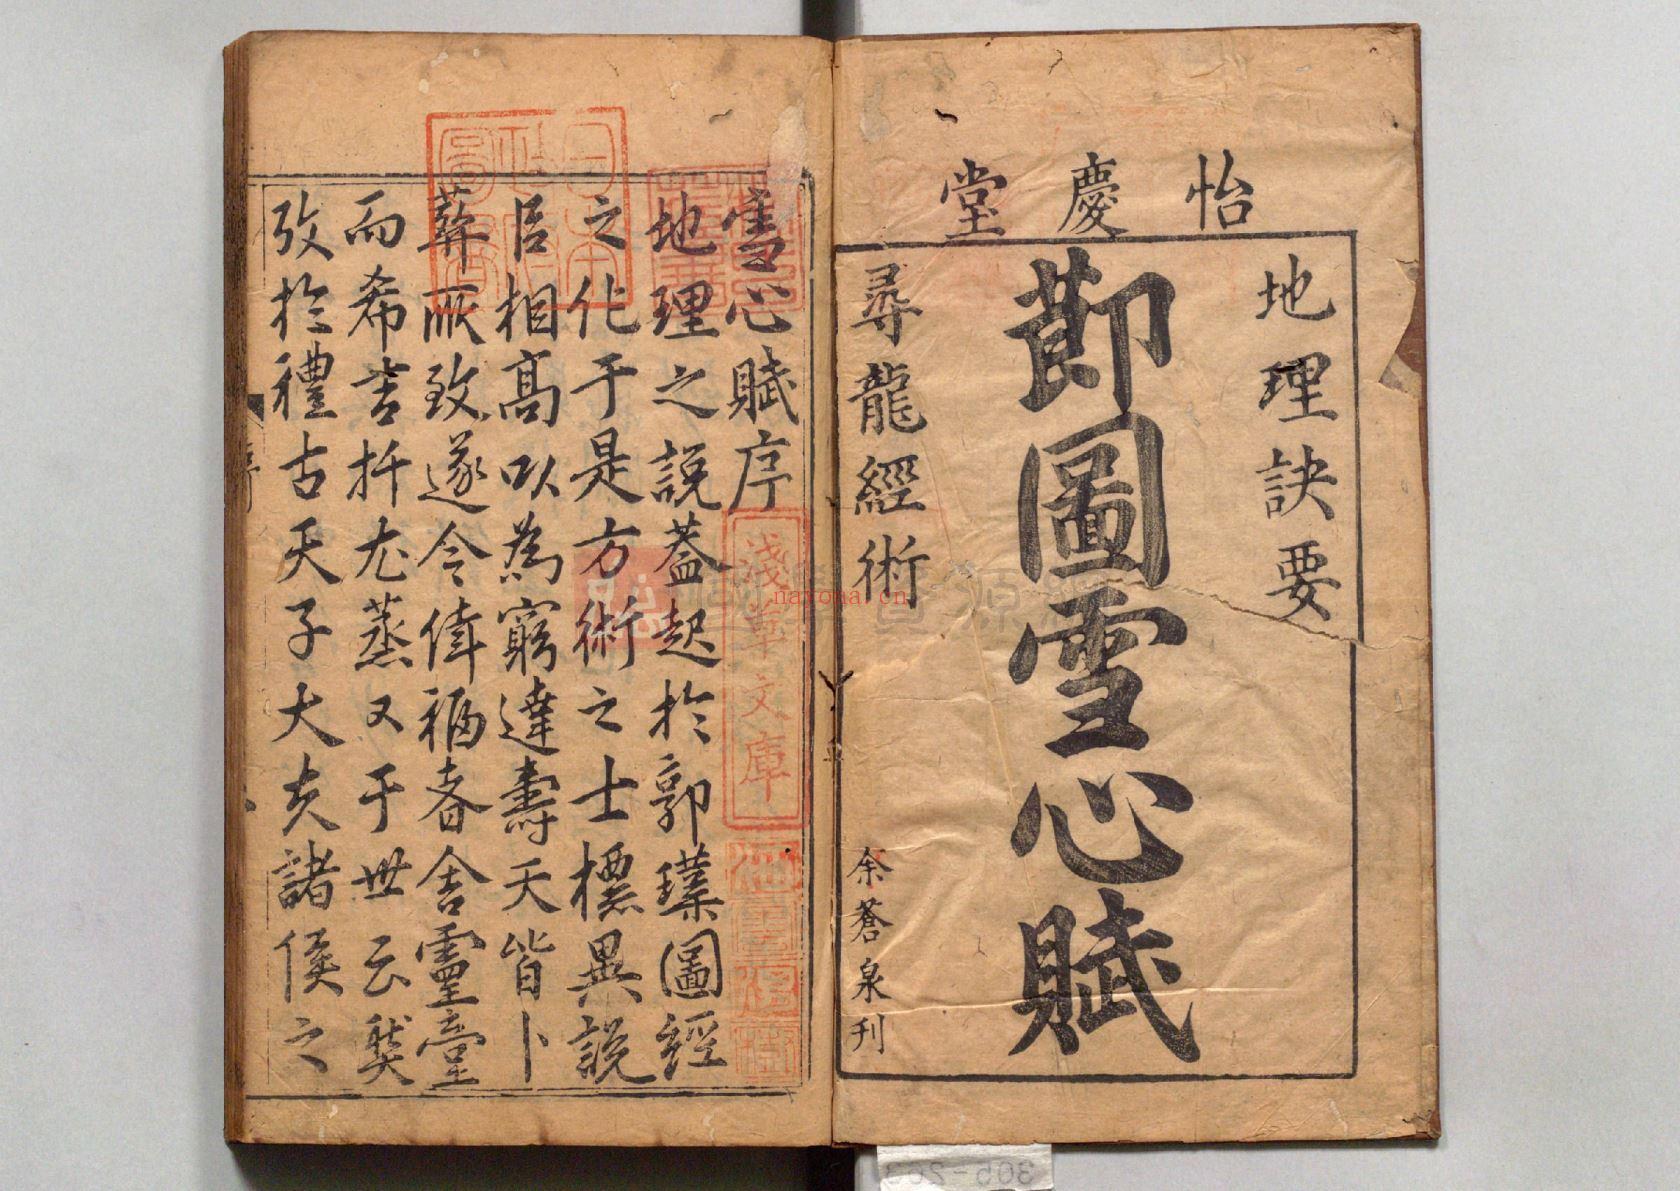 怡慶堂
地理訣要
莭圖雪心賦
尋龍經術
余蒼泉刊
雪心賦序
地理之說蓋起於郭璞圖經
之化于是方術之士標異說
㠯相高以為窮達壽夭皆卜
葬所致遂令偉福者舍靈臺
而希吉扦尤蒸又于世云
攷於禮古天子大夫諸侯之
日本政府圖書
淺草文庫
nayona.cn